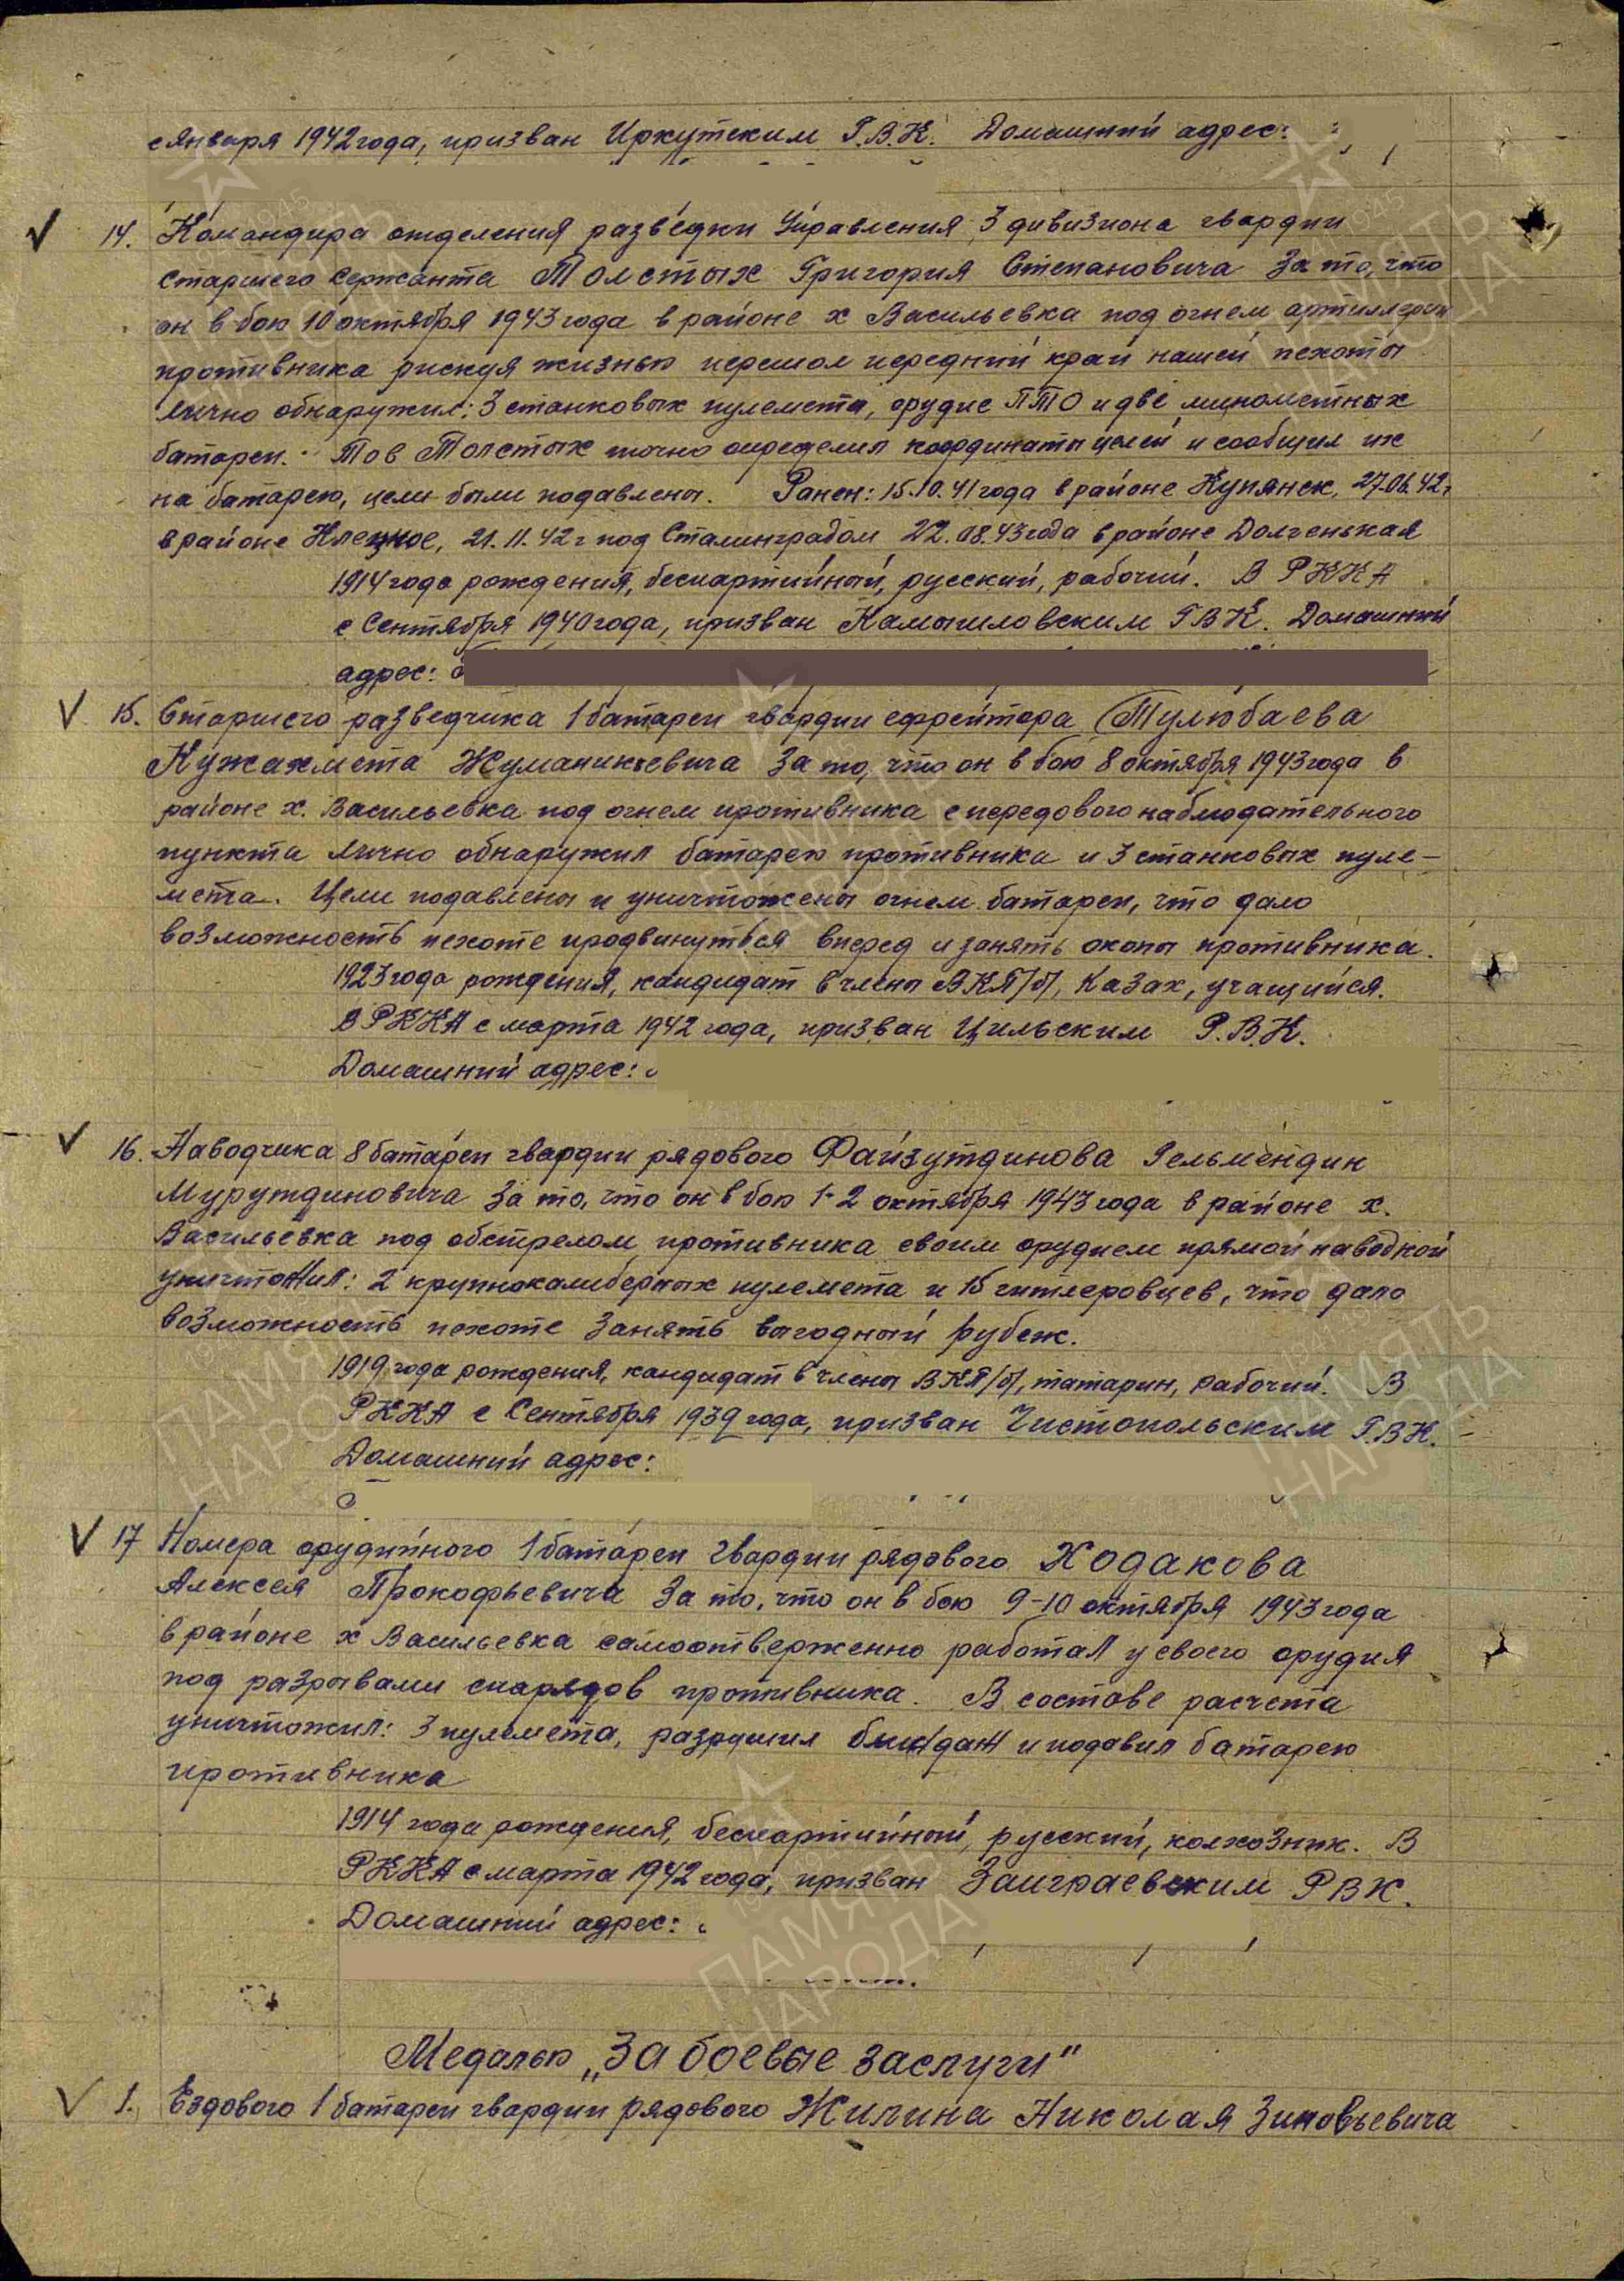 с Января 1942 года, призван Иркутским Г.В.К. Домашний адрес:
14. Командира отделения разведки Управления 3 дивизиона гвардии
старшего сержанта Толстых Григория Степановича За то, что
он в бою 10 октября 1943 года в районе х Васильевка под огнем артиллерии
противника рискуя жизнью перешол передний край нашей пехоты
лично обнаружил: 3 станковых пулемета, орудие ПТО и две минометных
батареи. Тов Толстых точно определил координаты целей и сообщил их
на батарею, цели были подавлены. Ранен: 15.10.41 года в районе Купянск, 27.06.42г
в районе Клецкое, 21.11.42 г под Сталинградом 22.08.43 года в районе Долгенькая
1914 года рождения, беспартийный, русский, рабочий. В РККА
с Сентября 1940 года, призван Камышловским ГВК. Домашний
адрес:
15. Старшего разведчика 1 батареи гвардии ефрейтора Тулюбаева
Кужахмета Жуманикьевича За то, что он в бою 8 октября 1943 года в
районе х. Васильевка под огнем противника с передового наблюдательного
пункта лично обнаружил батарею противника и 3 станковых пуле-
мета. Цели подавлены и уничтожены огнем батареи, что дало
возможность пехоте продвинуться вперед и занять окопы противника.
1923 года рождения, кандидат в члены ВКП/б/, Казах, учащийся.
В РККА с марта 1942 года, призван Цильским Р.В.К.
Домашний адрес:
16. Наводчика 8 батареи гвардии рядового Файзутдинова Гельмендин
Мурутдиновича За то, что он в бою 1-2 октября 1943 года в районе х.
Васильевка под обстрелом противника своим орудием прямой наводкой
уничтожил: 2 крупнокалиберных пулемета и 15 гитлеровцев, что дало
возможность пехоте занять выгодный рубеж.
1919 года рождения, кандидат в члены ВКП/б/, татарин, рабочий. В
РККА с Сентября 1939 года, призван Чистопольским Г.В.К.
Домашний адрес:
17 Номера орудийного 1 батареи гвардии рядового Ходакова
Алексея Прокофьевича За то, что он в бою 9-10 октября 1943 года
в районе х Васильевка самоотверженно работал у своего орудия
под разрывами снарядов противника. В составе расчета
уничтожил: 3 пулемета, разрушил блиндаж и подавил батарею
противника
1914 года рождения, беспартийный, русский, колхозник. В
РККА с марта 1942 года, призван Заиграевским РВК.
Домашний адрес:
Медалью „За боевые заслуги"
1. Ездового 1 батареи гвардии рядового Жилина Николая Зиновьевича